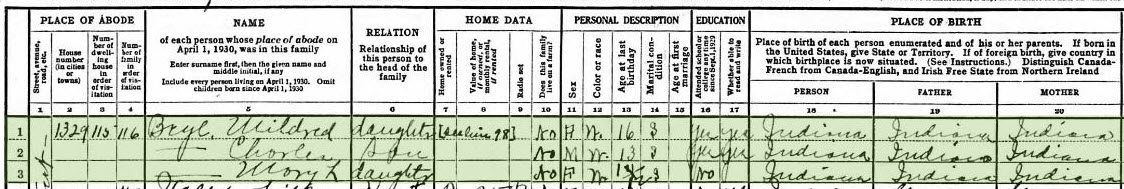 PLACE OF ABODE
NAME
RELATION
HOME DATA
PERSONAL DESCRIPTION
EDUCATION
PLACE OF BIRTH
Street, avenue, road, etc.
House number (in cities or towns)
Number of dwelling house in order of visitation
Number of family in order of visitation
of each person whose place of abode on
April 1, 1930, was in this family
Enter surname first, then the given name and
middle initial, if any
Include every person living on April 1, 1930. Omit
children born since April 1, 1930
Relationship of
this person to the
head of the
family
Home owned or rented
Value of home, if owned, or monthly rental, if rented
Radio set
Does this family live on a farm?
Sex
Color or race
Age at last birthday
Marital condition
Age at first marriage
Attended school or college any time since Sept. 1, 1929
Whether able to read and write
Place of birth of each person enumerated and of his or her parents. If born in
the United States, give State or Territory. If of foreign birth, give country in
which birthplace is now situated. (See Instructions.) Distinguish Canada-
French from Canada-English, and Irish Free State from Northern Ireland
PERSON FATHER MOTHER
1 2 3 4 5 6 7 8 9 10 11 12 13 14 15 16 17 18 19 20
1 1329 115 116 Mildred daughter No F W 16 S Yes Yes Indiana Indiana Indiana
2 — Charles Son No M W 13 S Yes Yes Indiana Indiana Indiana
3 — daughter No F W S No Indiana Indiana Indiana